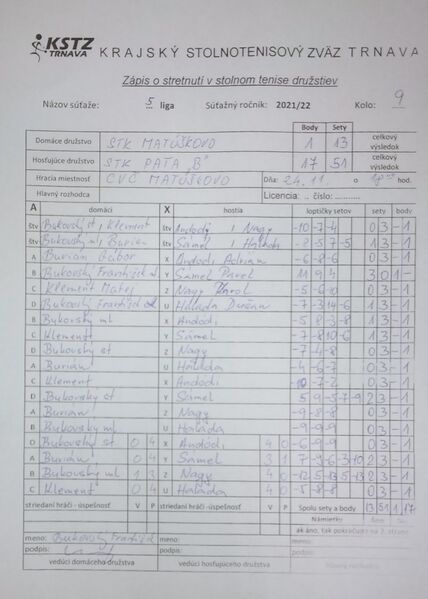 KSTZ
TRNAVA
KRAJSKÝ STOLNOTENISOVÝ ZVÄZ TRNAVA
Zápis o stretnutí v stolnom tenise družstiev
Názov súťaže: 5 liga Súťažný ročník: 2021/22 Kolo: 9
Body Sety celkový výsledok
Domáce družstvo STK MATÚŠKOVO 1 13
Hosťujúce družstvo STK PATA "B" 17 51 celkový výsledok
Hracia miestnosť CVČ MATÚŠKOVO Dňa: 24.11. o hod.
Hlavný rozhodca Licencia: .. číslo:
A domáci X hostia loptičky setov sety body
štv Bukovský st, Klement štv Andodi, Nagy -10 -7 -4 0 3 - 1
štv Bukovský ml, Burian štv Sámel, Halada 1 3 - 1
A Burian Gabor X Andodi Adrian -6 -8 -6 0 3 - 1
B Bukovský František Y Sámel Pavel 11 9 4 3 0 1 -
C Klement Matej Z Nagy Karol -5 -6 0 3 - 1
D Bukovský František st U Halada Dušan -7 -3 14 -6 1 3 - 1
B Bukovský ml X Andodi -5 8 -3 -8 1 3 - 1
C Klement Y Sámel -7 -8 10 -6 1 3 - 1
D Bukovský st Z Nagy -7 -4 -8 0 3 - 1
A Burian U Halada -4 -6 -7 0 3 - 1
C Klement X Andodi -10 -7 -2 0 3 - 1
D Bukovský st Y Sámel 5 9 -5 -7 -9 2 3 - 1
A Burian Z Nagy -9 -8 -8 0 3 - 1
B Bukovský ml U Halada -9 -9 -9 0 3 - 1
D Bukovský st 0 4 X Andodi 4 0 -6 -9 -9 0 3 - 1
A Burian 0 4 Y Sámel 3 1 7 -9 -6 3 -10 2 3 - 1
B Bukovský ml 1 3 Z Nagy 4 0 -12 5 -13 5 -13 2 3 - 1
C Klement 0 4 U Halada 4 0 -5 -8 -8 0 3 - 1
striedaní hráči - úspešnosť V P striedaní hráči - úspešnosť V P Spolu sety a body 13 51 1 17
Námietky Áno
ak áno, tak pokračujte na 2. strane
meno: Bukovský František meno: meno:
podpis: podpis: podpis:
vedúci domáceho družstva vedúci hosťujúceho družstva Hlavný rozhodca